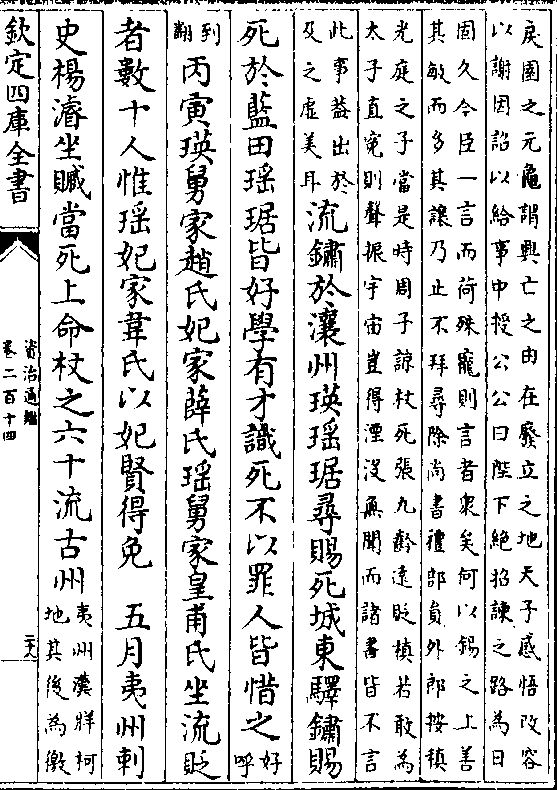 戾園之元龜謂興亡之由在廢立之地天子感悟改容
以謝因詔以給事中授公公曰陛下絕招諫之路為日
固久今臣一言而荷殊寵則言者衆矣何以錫之上善
其敏而多其讓乃止不拜尋除尚書禮部員外郎按稹
光庭之子當是時周子諒杖死張九齡遠貶稹若敢為
太子直寃則聲振宇宙豈得湮沒無聞而諸書皆不言
此事蓋出於
及之虛美耳
流鏽於瀼州瑛瑶琚尋賜死城東驛鏽賜
死於藍田瑶琚皆好學有才識死不以罪人皆惜之
好
呼
到
翻
丙寅瑛舅家趙氏妃家薛氏瑶舅家皇甫氏坐流貶
者數十人惟瑶妃家韋氏以妃賢得免　五月夷州刺
史楊濬坐贓當死上命杖之六十流古州
夷州漢牂柯
地其後為徼
欽定四庫全書
資治通鑑
卷二百十四